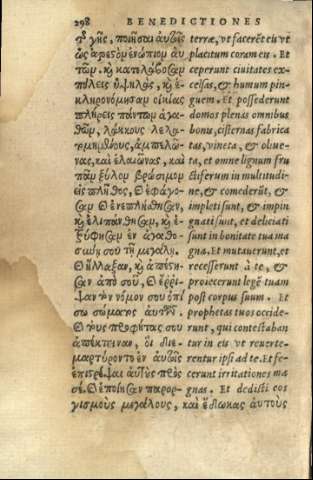 298 BENEDICTIONES
τ͂ γῆς, ποιῆσαι αὐτοῖς
ὡς ἀρεστὸν ἐνώπιον αὐ
τῶν. καὶ κατελάβοσαν
πόλεις ὑψηλὰς, καὶ ἐ-
κληρονόμησαν οἰκίας
πλήρεις πάντων ἀγα-
θῶν, λάκκους λελα-
τομημένους, ἀμπελῶ-
νας, καὶ ἐλαιῶνας, καὶ
πᾶν ξύλον βρώσιμον
εἰς πλῆθος, Καὶ ἐφάγο-
σαν Καὶ ἐνεπλήσθησαν,
καὶ ἐλιπάνθησαν, καὶ ἐ-
τρύφησαν ἐν ἀγαθο-
σύνῃ σου τῇ μεγάλῃ.
Καὶ ἤλλαξαν, καὶ ἀπέστη-
σαν ἀπὸ σοῦ, Καὶ ἔρρι-
ψαν τὸν νόμον σου ὀπί
σω σώματος αὐτῶν,
Καὶ τοὺς προφήτας σου
ἀπέκτειναν, οἳ διε-
μαρτύροντο ἐν αὐτοῖς
ἐπιστρέψαι αὐτοὺς πρὸς
σέ. Καὶ ἐποίησαν παρορ-
γισμοὺς μεγάλους, καὶ ἔδωκας αὐτοὺς
terræ, vt facerēt eis vt
placitum coram eis. Et
ceperunt ciuitates ex-
celsas, & humum pin-
guem. Et possederunt
domos plenas omnibus
bonis, cisternas fabrica
tas, vineta, & oliue-
ta, et omne lignum fru
ctiferum in multitudi-
ne, & comederūt, &
impleti sunt, & impin
guati sunt, et deliciati
sunt in bonitate tua ma
gna. Et mutauerunt, et
recesserunt à te, &
proiecerunt legē tuam
post corpus suum. Et
prophetas tuos occide-
runt, qui contestaban
tur in eis vt reuerte-
rentur ipsi ad te. Et fe-
cerunt irritationes ma
gnas. Et dedisti eos